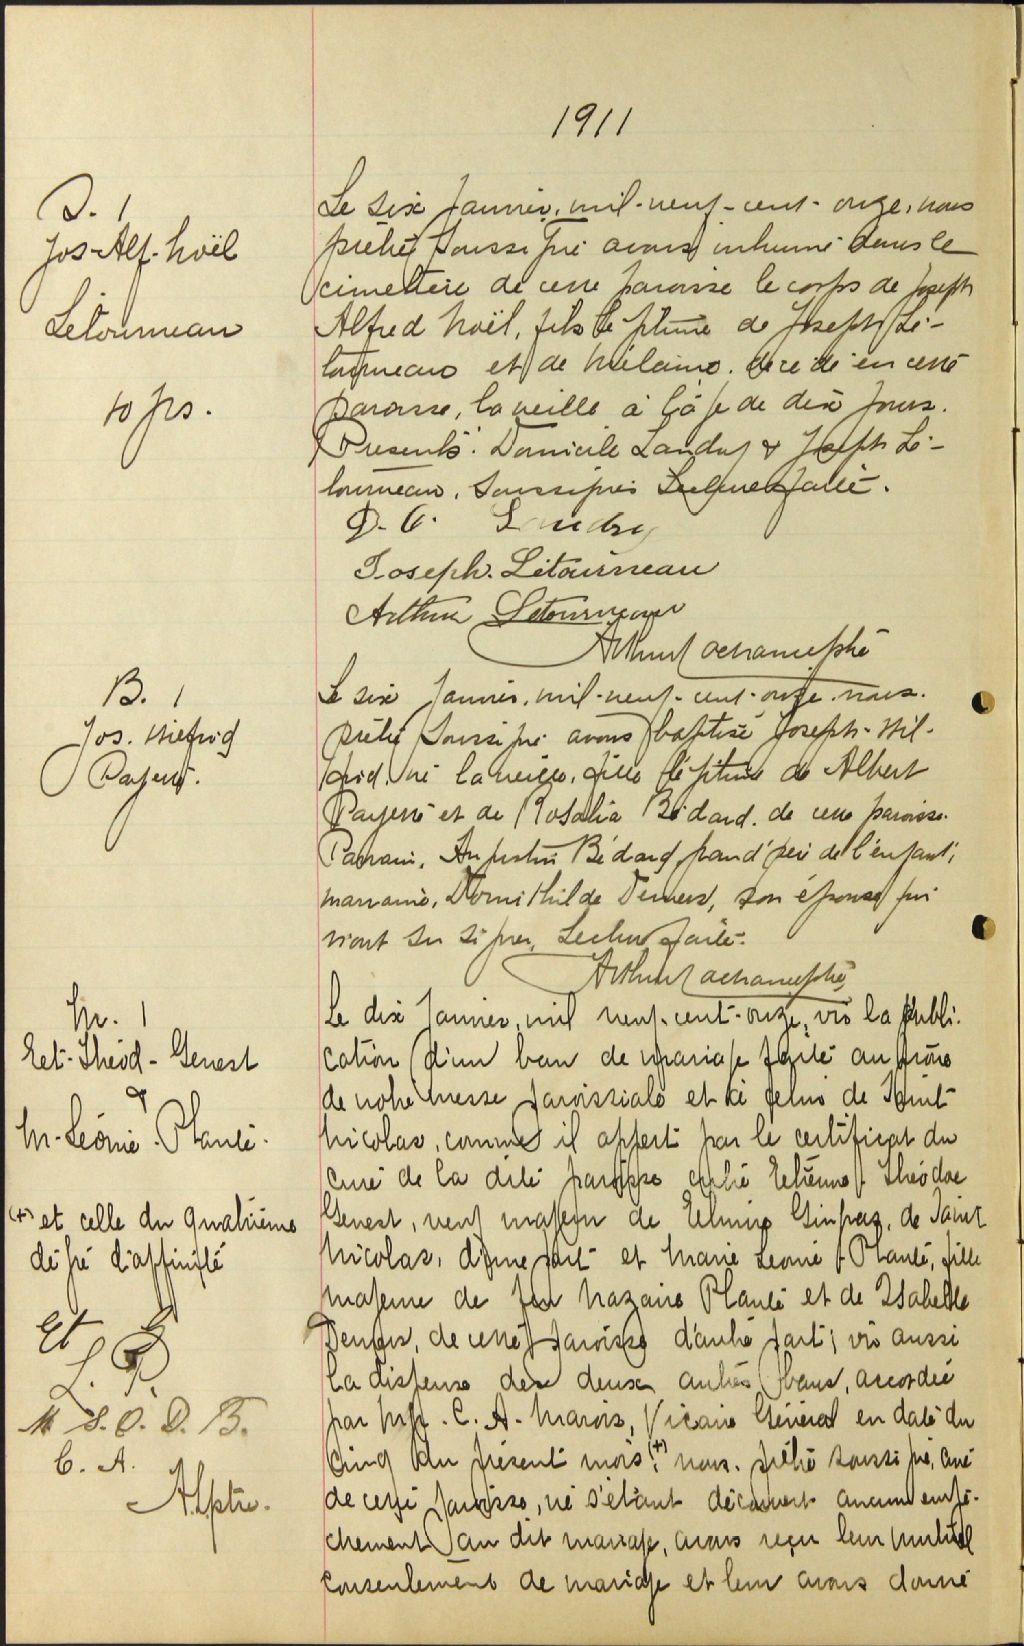 1911
S. 1
Jos-Alf. Noël
Letourneau
10 jrs.
Le six Janvier, mil-neuf-cent-onze, nous
prêtre soussigné avons inhumé dans le
cimetière de cette paroisse le corps de Joseph
Alfred Noël, fils légitime de Joseph Lé-
tourneau et de décédé en cette
paroisse, la veille à l'âge de dix jours.
Présents: Domicile Landry & Joseph Lé-
tourneau, soussignés Lecture faite.
D. Landry
Joseph. Létourneau
Arthur Letourneau
Arthur ptre
B. 1
Jos. Wilfrid
Payeur.
Le six Janvier, mil-neuf-cent-onze nous.
prêtre soussigné avons baptisé Joseph-Wil-
frid, né la veille, fils légitime de Albert
et de Rosalia Bédard, de cette paroisse.
Parrain, Augustin Bédard, grand'père de l'enfant,
marraine, Domithilde Demers, son épouse qui
n'ont su signer, Lecture faite.
Arthur ptre
M. 1
Eet-Théod-Genest
&
M-Léonie-Planté.
Le dix Janvier, mil neuf-cent-onze, vu la publi-
cation d'un ban de mariage faite au prône
de notre messe paroissiale et à celui de Saint
Nicolas, comme il appert par le certificat du
curé de la dite paroisse entre Etienne-Théodore
Genest, veuf majeur de Elmire Gingras, de Saint
Nicolas, d'une part et Marie Léonie Planté, fille
majeure de feu Nazaire Planté et de Isabelle
Demers, de cette paroisse d'autre part; vu aussi
la dispense des deux autres bans, accordée
par Mgr. C. A. Marois, Vicaire Général en date du
cinq du présent mois (+), nous, prêtre soussigné, curé
de cette paroisse, ne s'étant découvert aucun empê-
chement au dit mariage, avons reçu leur mutuel
consentement de mariage et leur avons donné
(+) et celle du quatrième
degré d'affinité
Et G
L. P.
S. O. D. B.
C. A.
A.L ptre.